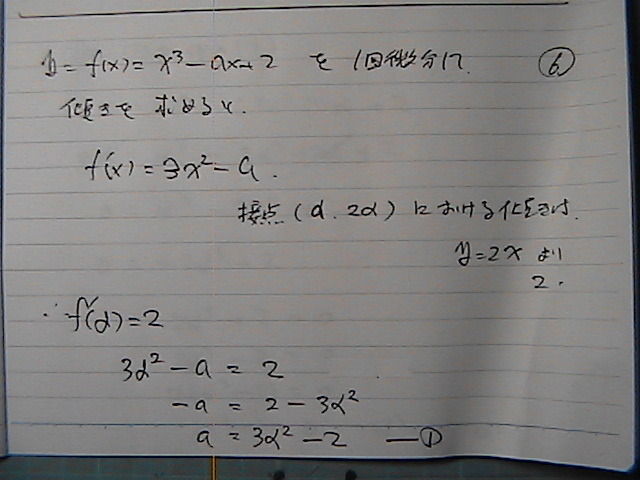 y = f(x) = x³ - ax + 2 を 1回微分して ⑥
傾きを 求めると.
f'(x) = 3x² - a.
接点 (α, 2α) における傾きは.
y = 2x より
2.
∴ f'(α) = 2
3α² - a = 2
-a = 2 - 3α²
a = 3α² - 2 —①